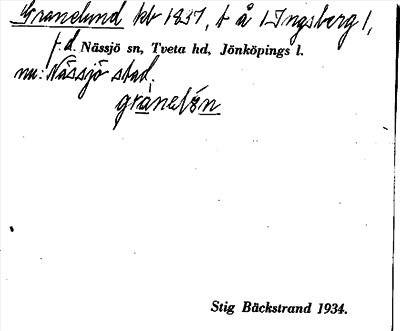 Granelund kb 1837, t å 1 Ingsberg 1,
f.d. Nässjö sn, Tveta hd, Jönköpings l.
nu: Nässjö stad.
Stig Bäckstrand 1934.